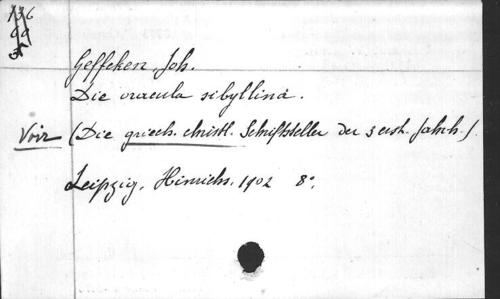 136
Geffcken, Joh.
Die oracula sibyllina.
Voir (Die griech. christl. Schriftsteller der 3 erst. Jahrh.).
Leipzig, Hinrichs, 1902 8°.